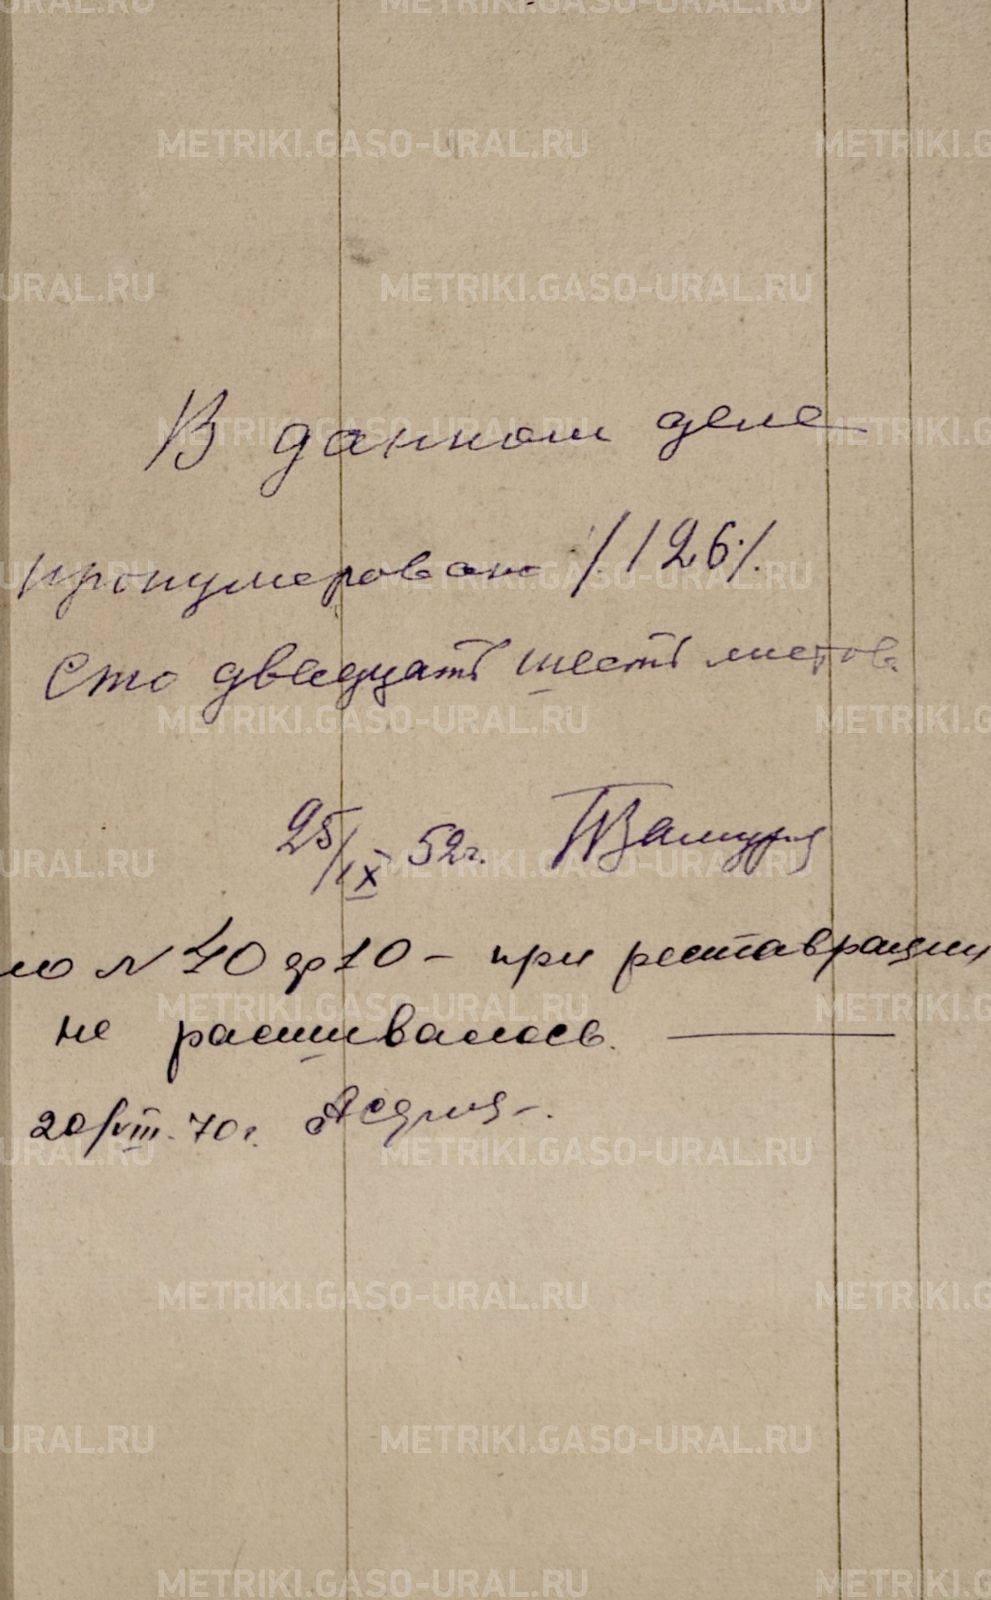 В данном деле
пронумеровано /.126./.
Сто двадцать шесть листов.
25/IX 52г.
ло № 40 др10 – при реставрации
не расшивалось.
20/VIII. 70г.
METRIKI.GASO-URAL.RU